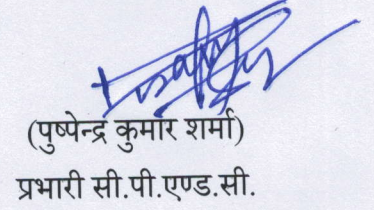 (पुष्पेन्द्र कुमार शर्मा)
प्रभारी सी.पी.एण्ड.सी.